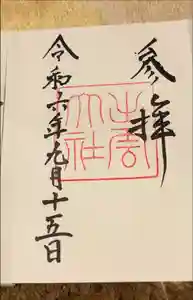 参拝
出雲大社
令和六年九月十五日